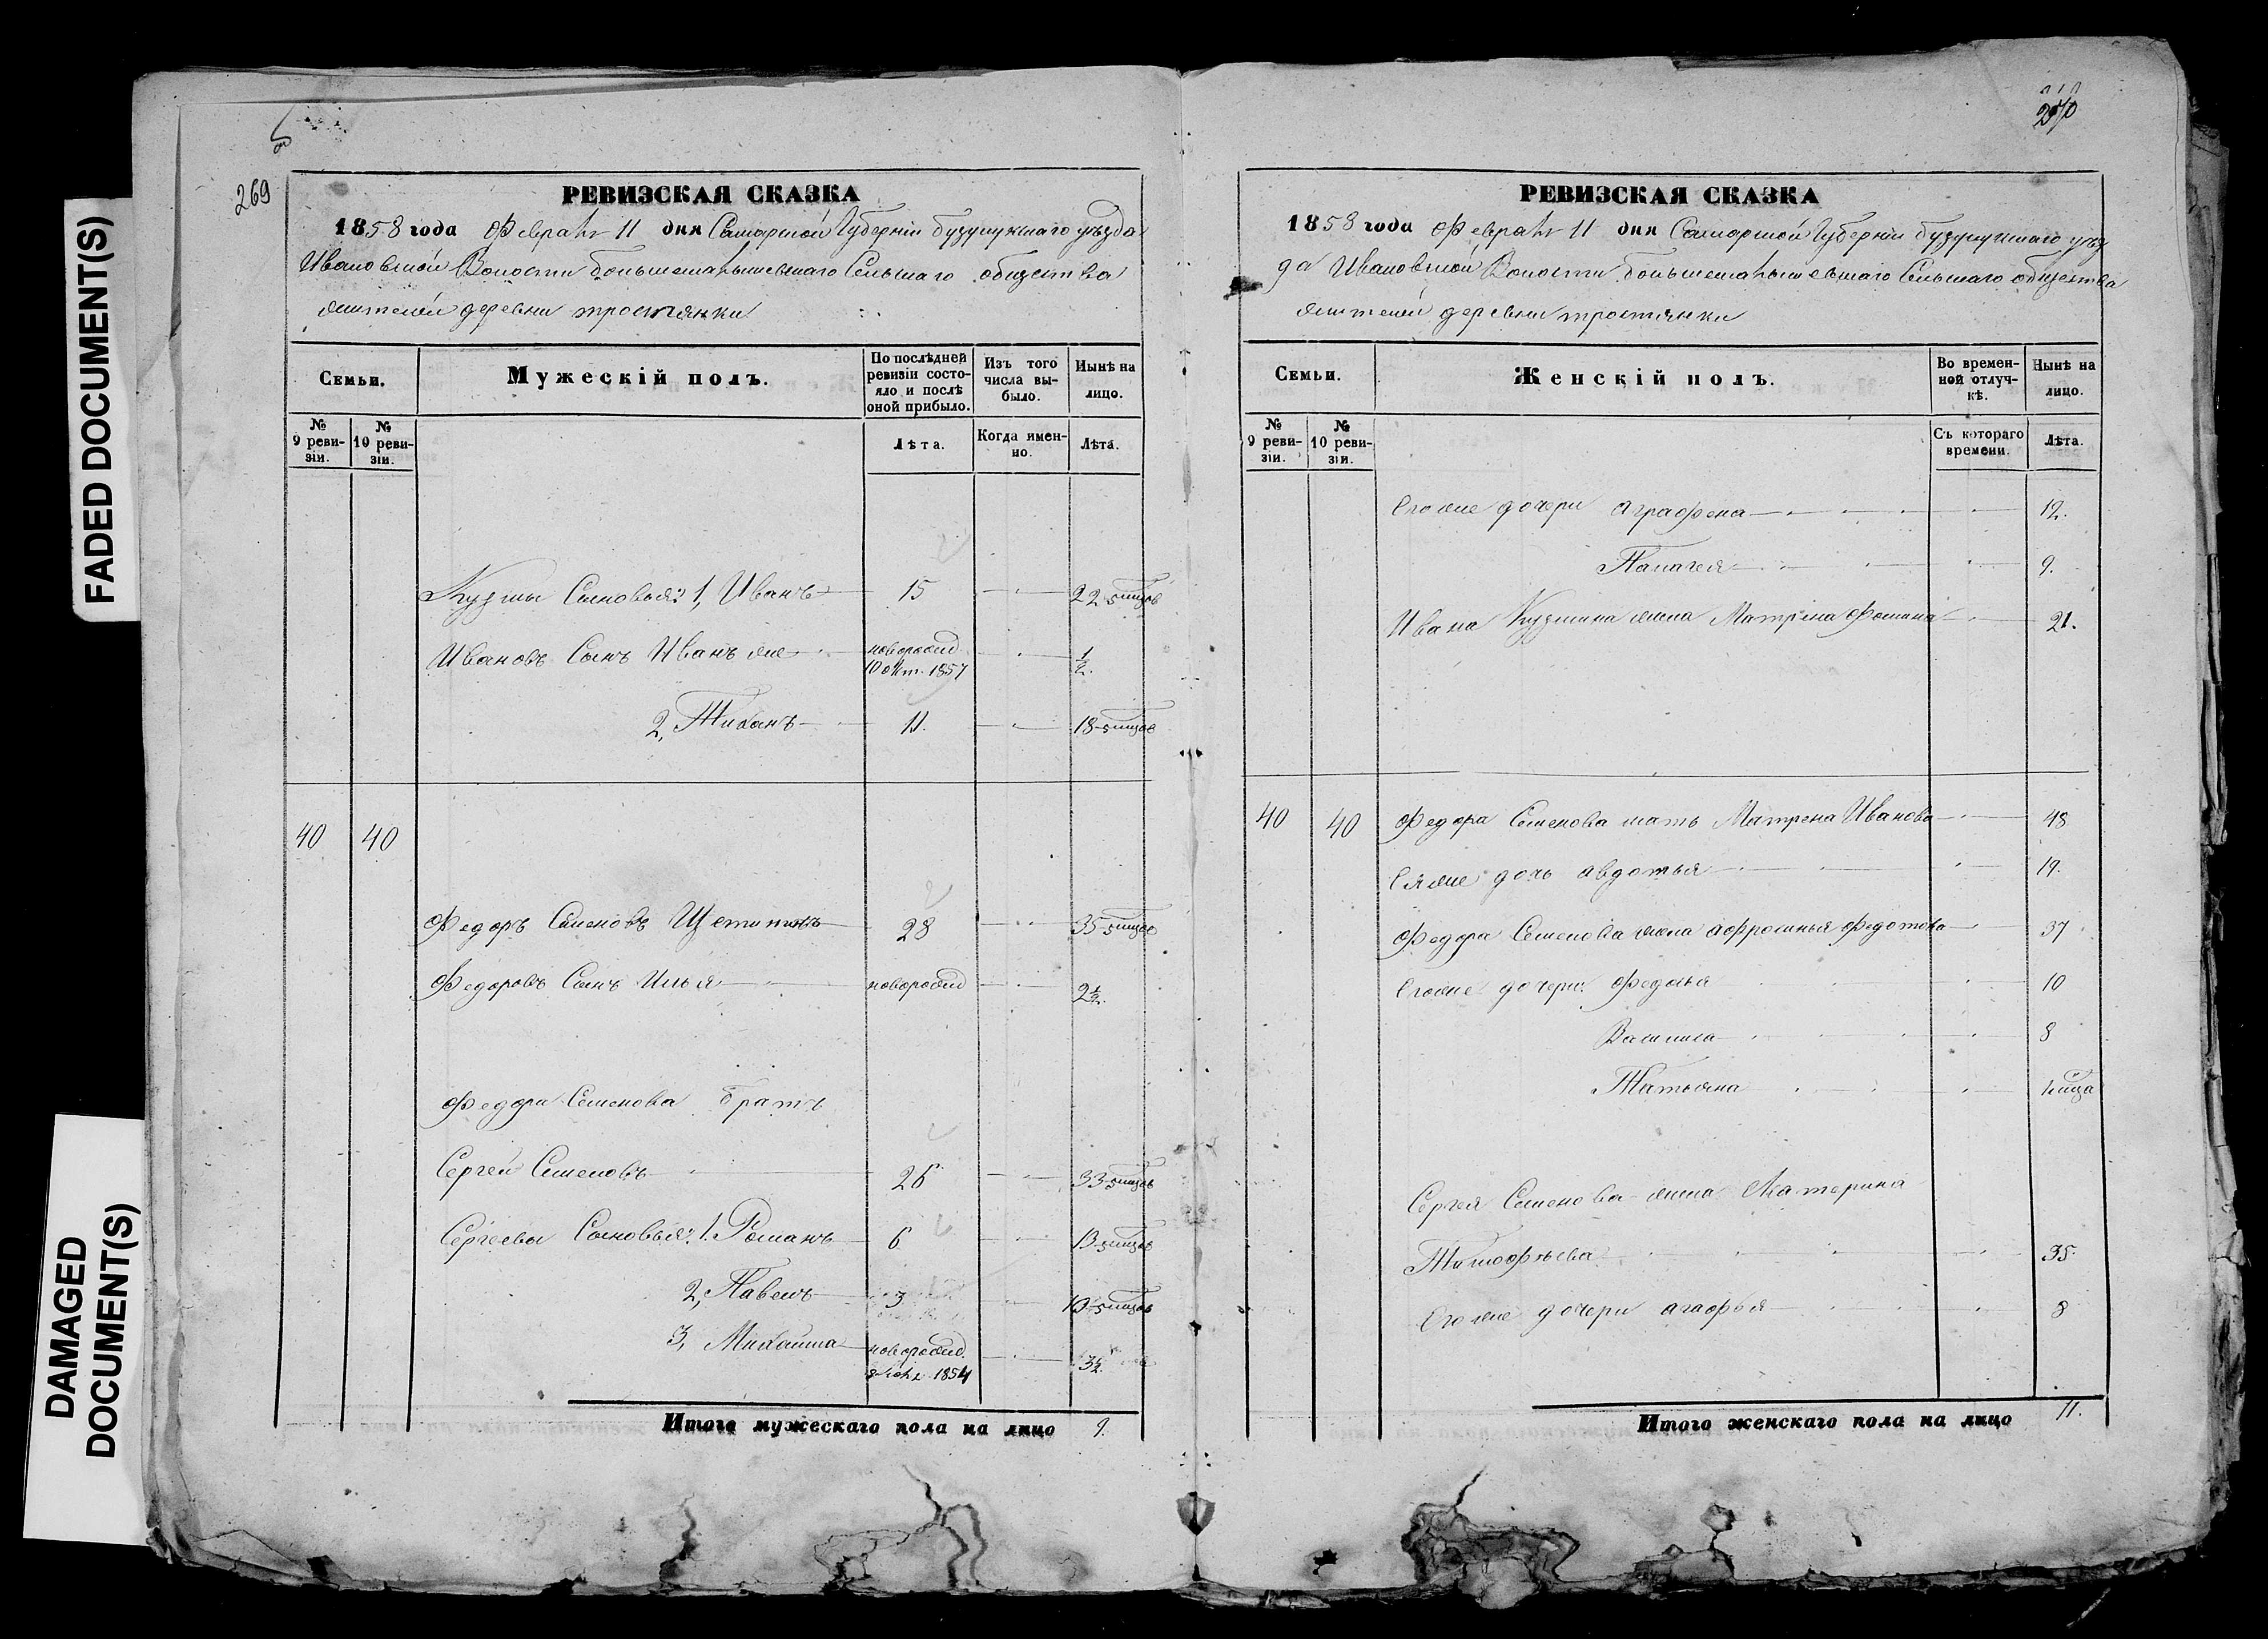 FADED DOCUMENT(S)
DAMAGED
DOCUMENT(S)
269
РЕВИЗСКАЯ СКАЗКА
1858 года Февраля 11 дня Самарской Губерніи бузулукскаго уѣзда
Ивановской Волости большемалышевскаго Сельскаго общества
жителей деревни тростянки
Семьи.
Мужескій полъ.
По послѣдней ревизіи состояло и послѣ оной прибыло.
Изъ того числа выбыло.
Нынѣ на лицо.
№ 9 ревизіи.
№ 10 ревизіи.
Лѣта.
Когда именно.
Лѣта.
Кузмы Сыновья: 1, Иванъ 15 22 5 мцов
Ивановъ Сынъ Иванъ же новорожд 10 окт. 1857 1/2.
2, Тиханъ 11. 18-5 мцов
40 40
Федоръ Семеновъ Щетининъ 28 35-5 мцов
Федоровъ Сынъ Илья новорожд 2 1/2.
Федора Семенова братъ
Сергей Семеновъ 26 33-5 мцов
Сергеевы Сыновья: 1. Романъ 6 13-5 мцов
2, Павелъ 3 10-5 мцов
3, Михаила новорожд. 1854 3 1/2.
Итого мужескаго пола на лицо 9.
270
РЕВИЗСКАЯ СКАЗКА
1858 года Февраля 11 дня Самарской Губерніи бузулукскаго уѣз
да Ивановской Волости большемалышевскаго Сельскаго общества
жителей деревни тростянки
Семьи.
Женскій полъ.
Во временной отлучкѣ.
Нынѣ на лицо.
№ 9 ревизіи.
№ 10 ревизіи.
Съ котораго времени.
Лѣта.
Его же дочери аграфена 12.
Палагея 9.
Ивана Кузмина жена Матрена Фомина 21.
40 40 Федора Семенова мать Матрена Иванова 48
Ея же дочь авдотья 19.
Федора Семенова жена афросинья Федотова 37
Его же дочери: Федосья 10
Васииса 8
Татьяна 1 мца
Сергея Семенова жена Катерина
Тимофѣева 35.
Его же дочери агафья 8
Итого женскаго пола на лицо 11.